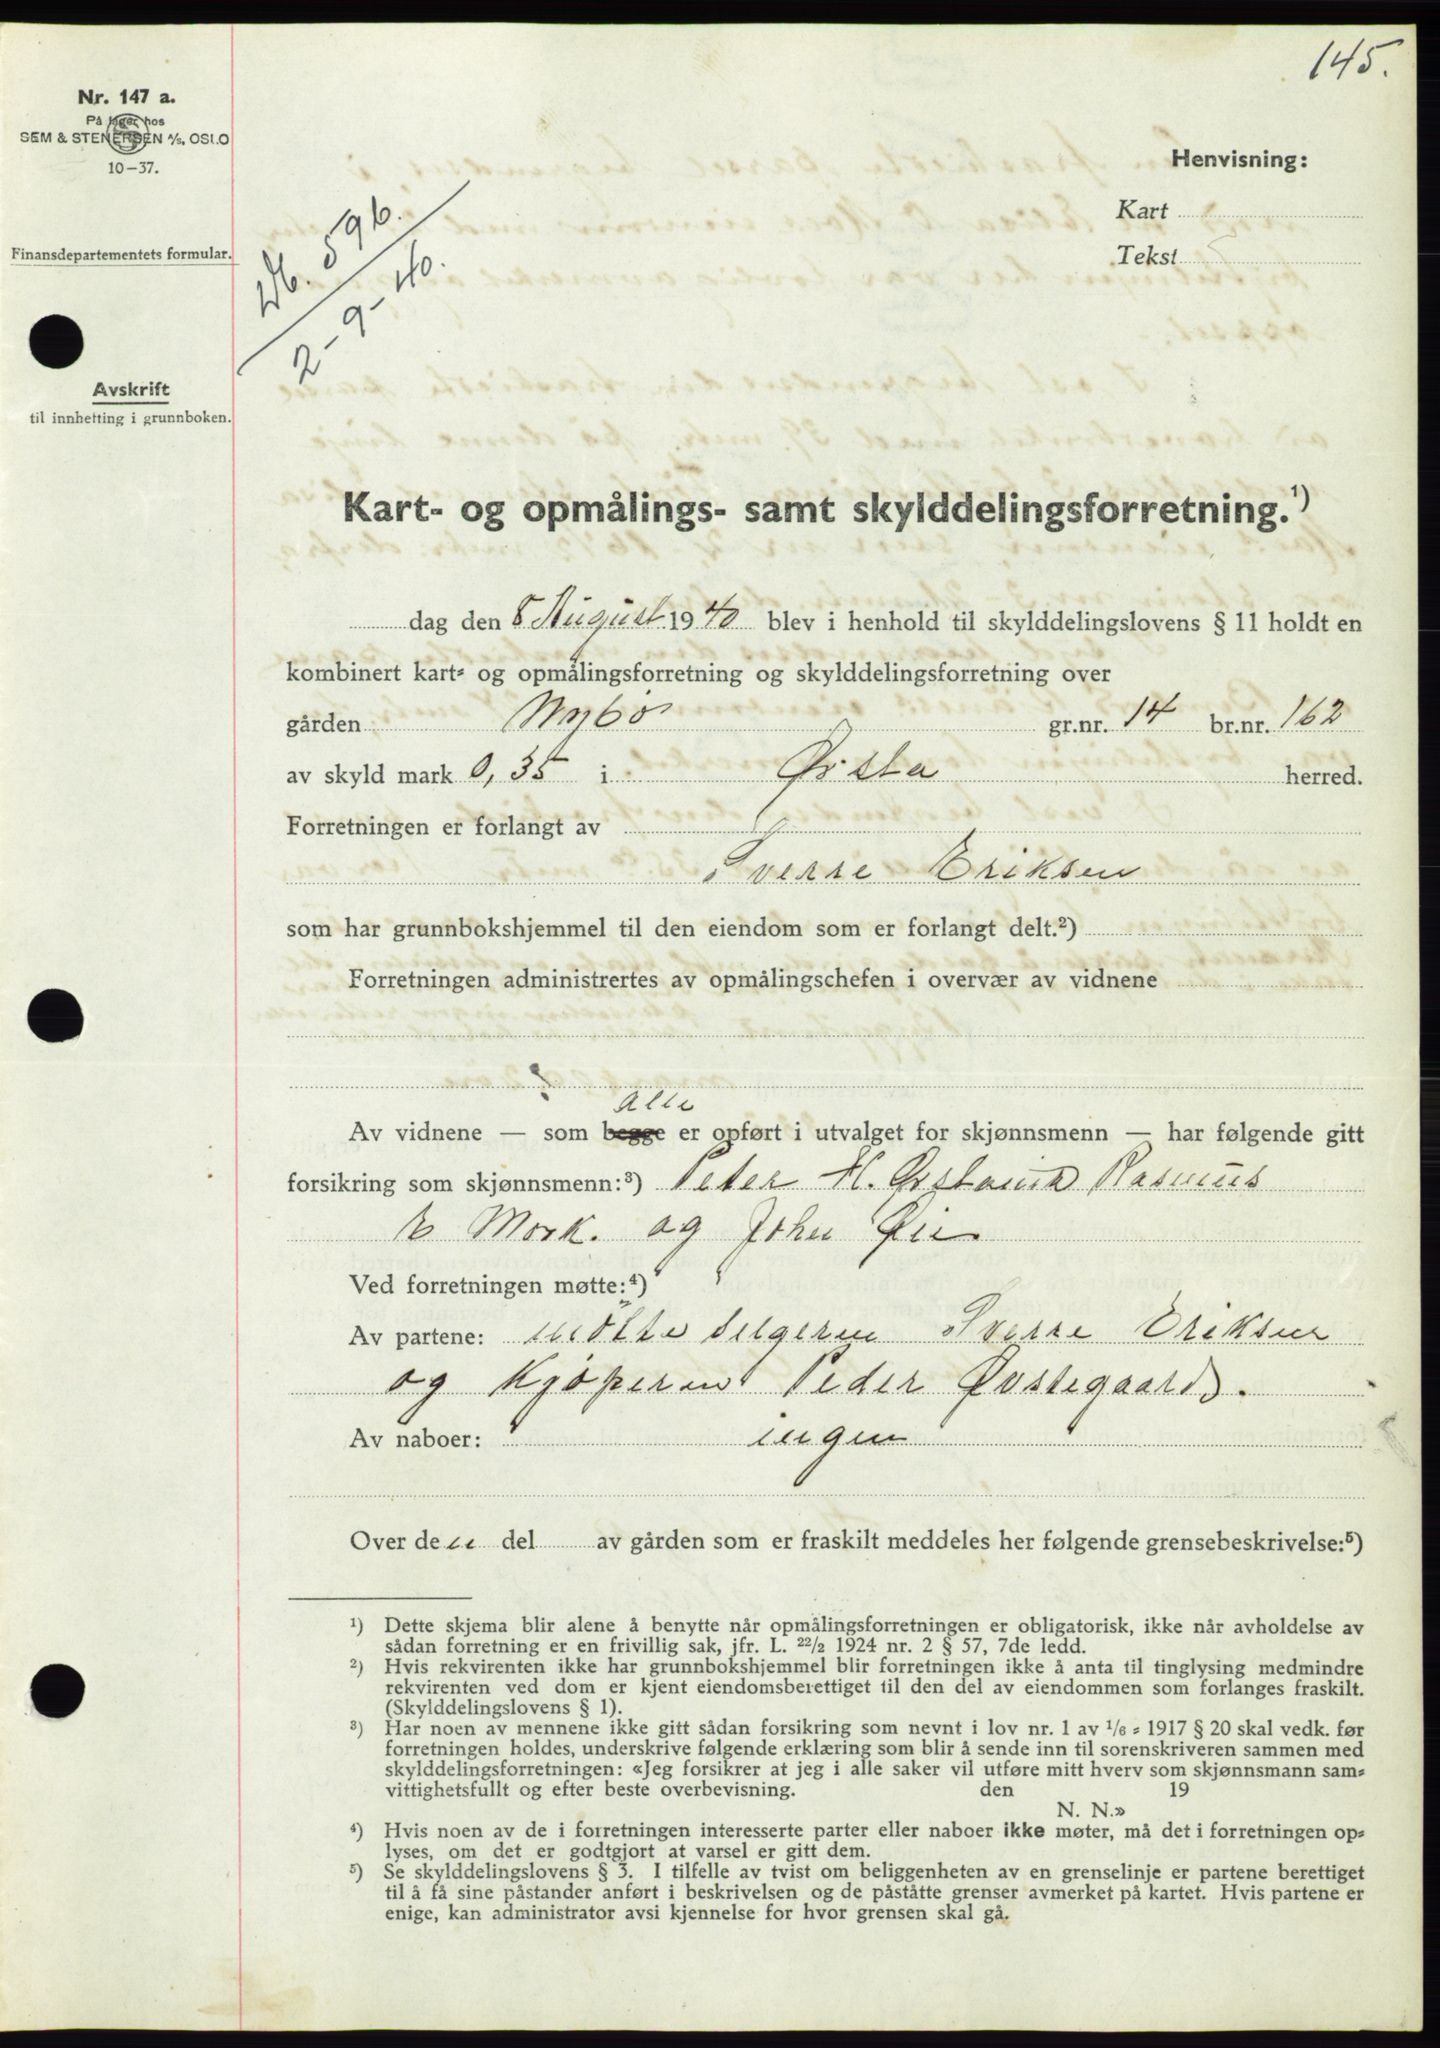 145.
Nr. 147 a.
På lager hos
SEM & STENERSEN A/S, OSLO
10-37.
Finansdepartementets formular.
Avskrift
til innhefting i grunnboken.
Db. 596.
2-9-40.
Henvisning:
Kart
Tekst
Kart- og opmålings- samt skylddelingsforretning.¹)
dag den 8 August 1940 blev i henhold til skylddelingslovens § 11 holdt en
kombinert kart- og opmålingsforretning og skylddelingsforretning over
gården Nybö gr.nr. 14 br.nr. 162
av skyld mark 0,35 i Ørsta herred.
Forretningen er forlangt av
Sverre Eriksen
som har grunnbokshjemmel til den eiendom som er forlangt delt.²)
Forretningen administrertes av opmålingschefen i overvær av vidnene
alle
Av vidnene — som begge er opført i utvalget for skjønnsmenn — har følgende gitt
forsikring som skjønnsmenn:³) Peter H. Ørstavik Rasmus
E Mork. og Johs Øie
Ved forretningen møtte:⁴)
Av partene: mötte selgeren Sverre Eriksen
og Kjöperen Peder Øvstegaard.
Av naboer: ingen
Over den del av gården som er fraskilt meddeles her følgende grensebeskrivelse:⁵)
¹) Dette skjema blir alene å benytte når opmålingsforretningen er obligatorisk, ikke når avholdelse av
sådan forretning er en frivillig sak, jfr. L. 22/2 1924 nr. 2 § 57, 7de ledd.
²) Hvis rekvirenten ikke har grunnbokshjemmel blir forretningen ikke å anta til tinglysing medmindre
rekvirenten ved dom er kjent eiendomsberettiget til den del av eiendommen som forlanges fraskilt.
(Skylddelingslovens § 1).
³) Har noen av mennene ikke gitt sådan forsikring som nevnt i lov nr. 1 av 1/6 - 1917 § 20 skal vedk. før
forretningen holdes, underskrive følgende erklæring som blir å sende inn til sorenskriveren sammen med
skylddelingsforretningen: «Jeg forsikrer at jeg i alle saker vil utføre mitt hverv som skjønnsmann sam-
vittighetsfullt og efter beste overbevisning. den 19
N. N.»
⁴) Hvis noen av de i forretningen interesserte parter eller naboer ikke møter, må det i forretningen op-
lyses, om det er godtgjort at varsel er gitt dem.
⁵) Se skylddelingslovens § 3. I tilfelle av tvist om beliggenheten av en grenselinje er partene berettiget
til å få sine påstander anført i beskrivelsen og de påståtte grenser avmerket på kartet. Hvis partene er
enige, kan administrator avsi kjennelse for hvor grensen skal gå.